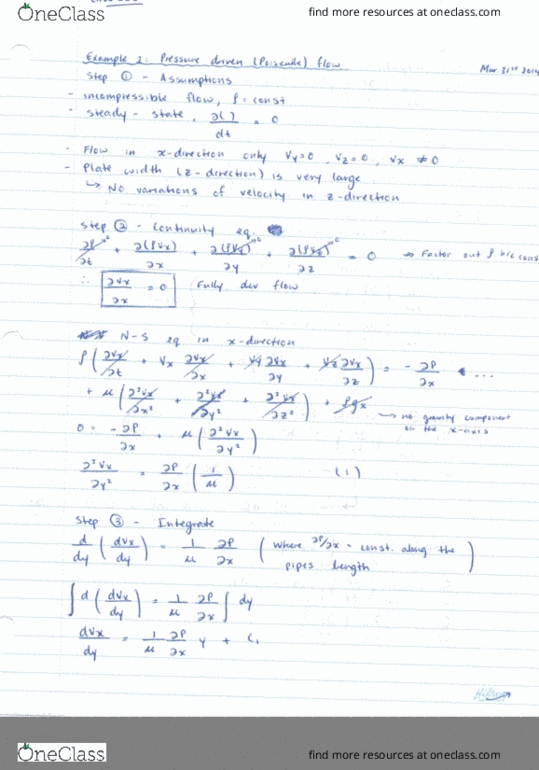 OneClass
find more resources at oneclass.com
Example 2: Pressure driven (Poiseuille) flow
Mar. 31st 2014
Step ① - Assumptions
- incompressible flow, ρ = const
- steady-state, ∂( )/dt = 0
- Flow in x-direction only Vy=0, Vz=0, Vx ≠0
- Plate width (z-direction) is very large
↳ No variations of velocity in z-direction
Step ② - Continuity eq.
∂ρ/∂t + ∂(ρVx)/∂x + ∂(ρVy)/∂y + ∂(ρVz)/∂z = 0 → Factor out ρ b/c const
∴ ∂Vx/∂x = 0 Fully dev flow
N-S eq in x-direction
ρ(∂Vx/∂t + Vx ∂Vx/∂x + Vy ∂Vx/∂y + Vz ∂Vx/∂z) = -∂P/∂x + ...
+ μ(∂²Vx/∂x² + ∂²Vx/∂y² + ∂²Vx/∂z²) + ρgx → no gravity component
on the x-axis
0 = -∂P/∂x + μ(∂²Vx/∂y²)
∂²Vx/∂y² = ∂P/∂x (1/μ) (1)
Step ③ - Integrate
d/dy (dVx/dy) = 1/μ ∂P/∂x (where ∂P/∂x = const. along the
pipes length)
∫d(dVx/dy) = 1/μ ∂P/∂x ∫dy
dVx/dy = 1/μ ∂P/∂x y + C₁
OneClass
find more resources at oneclass.com